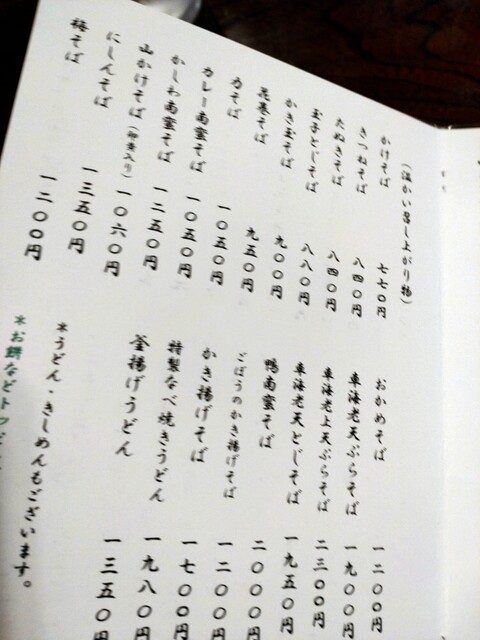 (温かい召し上がり物)
かけそば 七七〇円
きつねそば 八四〇円
たぬきそば 八四〇円
玉子とじそば 八八〇円
かき玉そば 九〇〇円
花巻そば 九五〇円
力そば 一〇五〇円
カレー南蛮そば 一〇五〇円
かしわ南蛮そば 一二五〇円
山かけそば(卵黄入り) 一〇六〇円
にしんそば 一三五〇円
梅そば 一二〇〇円
おかめそば 一二〇〇円
車海老天ぷらそば 一九〇〇円
車海老上天ぷらそば 二三〇〇円
車海老天とじそば 一九五〇円
鴨南蛮そば 二〇〇〇円
ごぼうのかき揚げそば 一二〇〇円
かき揚げそば 一七〇〇円
特製なべ焼きうどん 一九八〇円
釜揚げうどん 一三五〇円
*うどん・きしめんもございます。
*お餅などトッピ